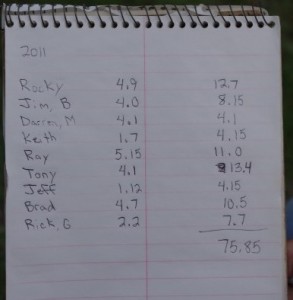 2011
Rocky 4.9 12.7
Jim, B 4.0 8.15
Darren, M 4.1 4.1
Keith 1.7 4.15
Ray 5.15 11.0
Tony 4.1 13.4
Jeff 1.12 4.15
Brad 4.7 10.5
Rick, G 2.2 7.7
75.85